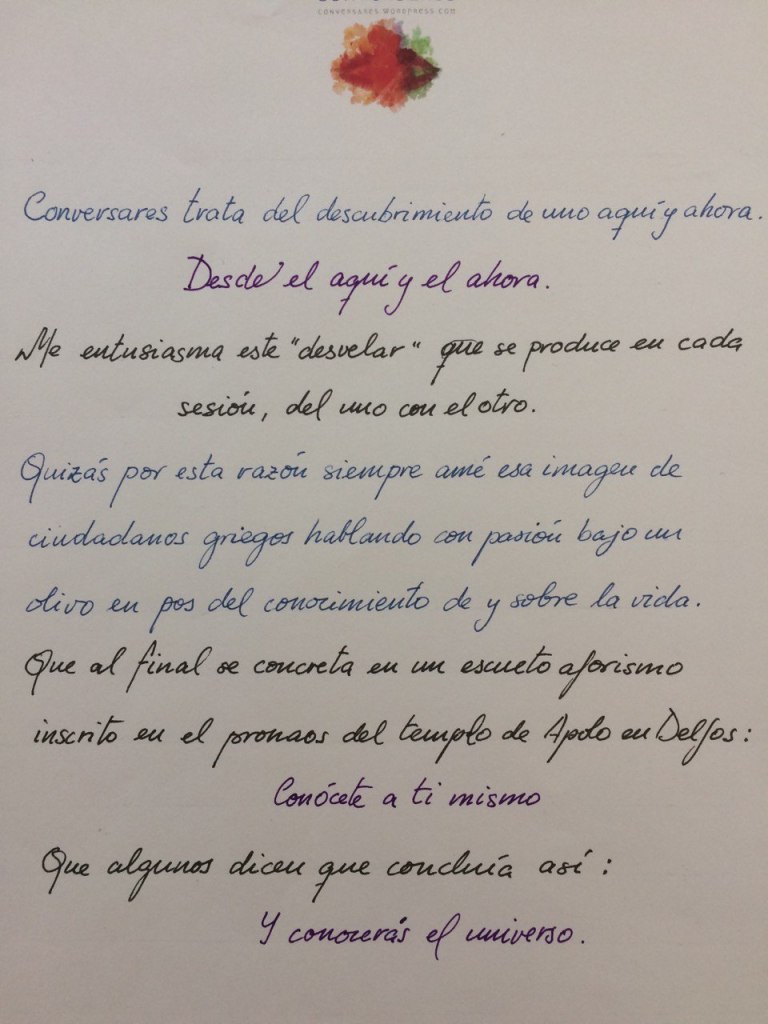 CONVERSARES.WORDPRESS.COM
Conversares trata del descubrimiento de uno aquí y ahora.
Desde el aquí y el ahora.
Me entusiasma este "desvelar" que se produce en cada
sesión, del uno con el otro.
Quizás por esta razón siempre amé esa imagen de
ciudadanos griegos hablando con pasión bajo un
olivo en pos del conocimiento de y sobre la vida.
Que al final se concreta en un escueto aforismo
inscrito en el pronaos del templo de Apolo en Delfos:
Conócete a ti mismo
Que algunos dicen que concluía así:
Y conocerás el universo.